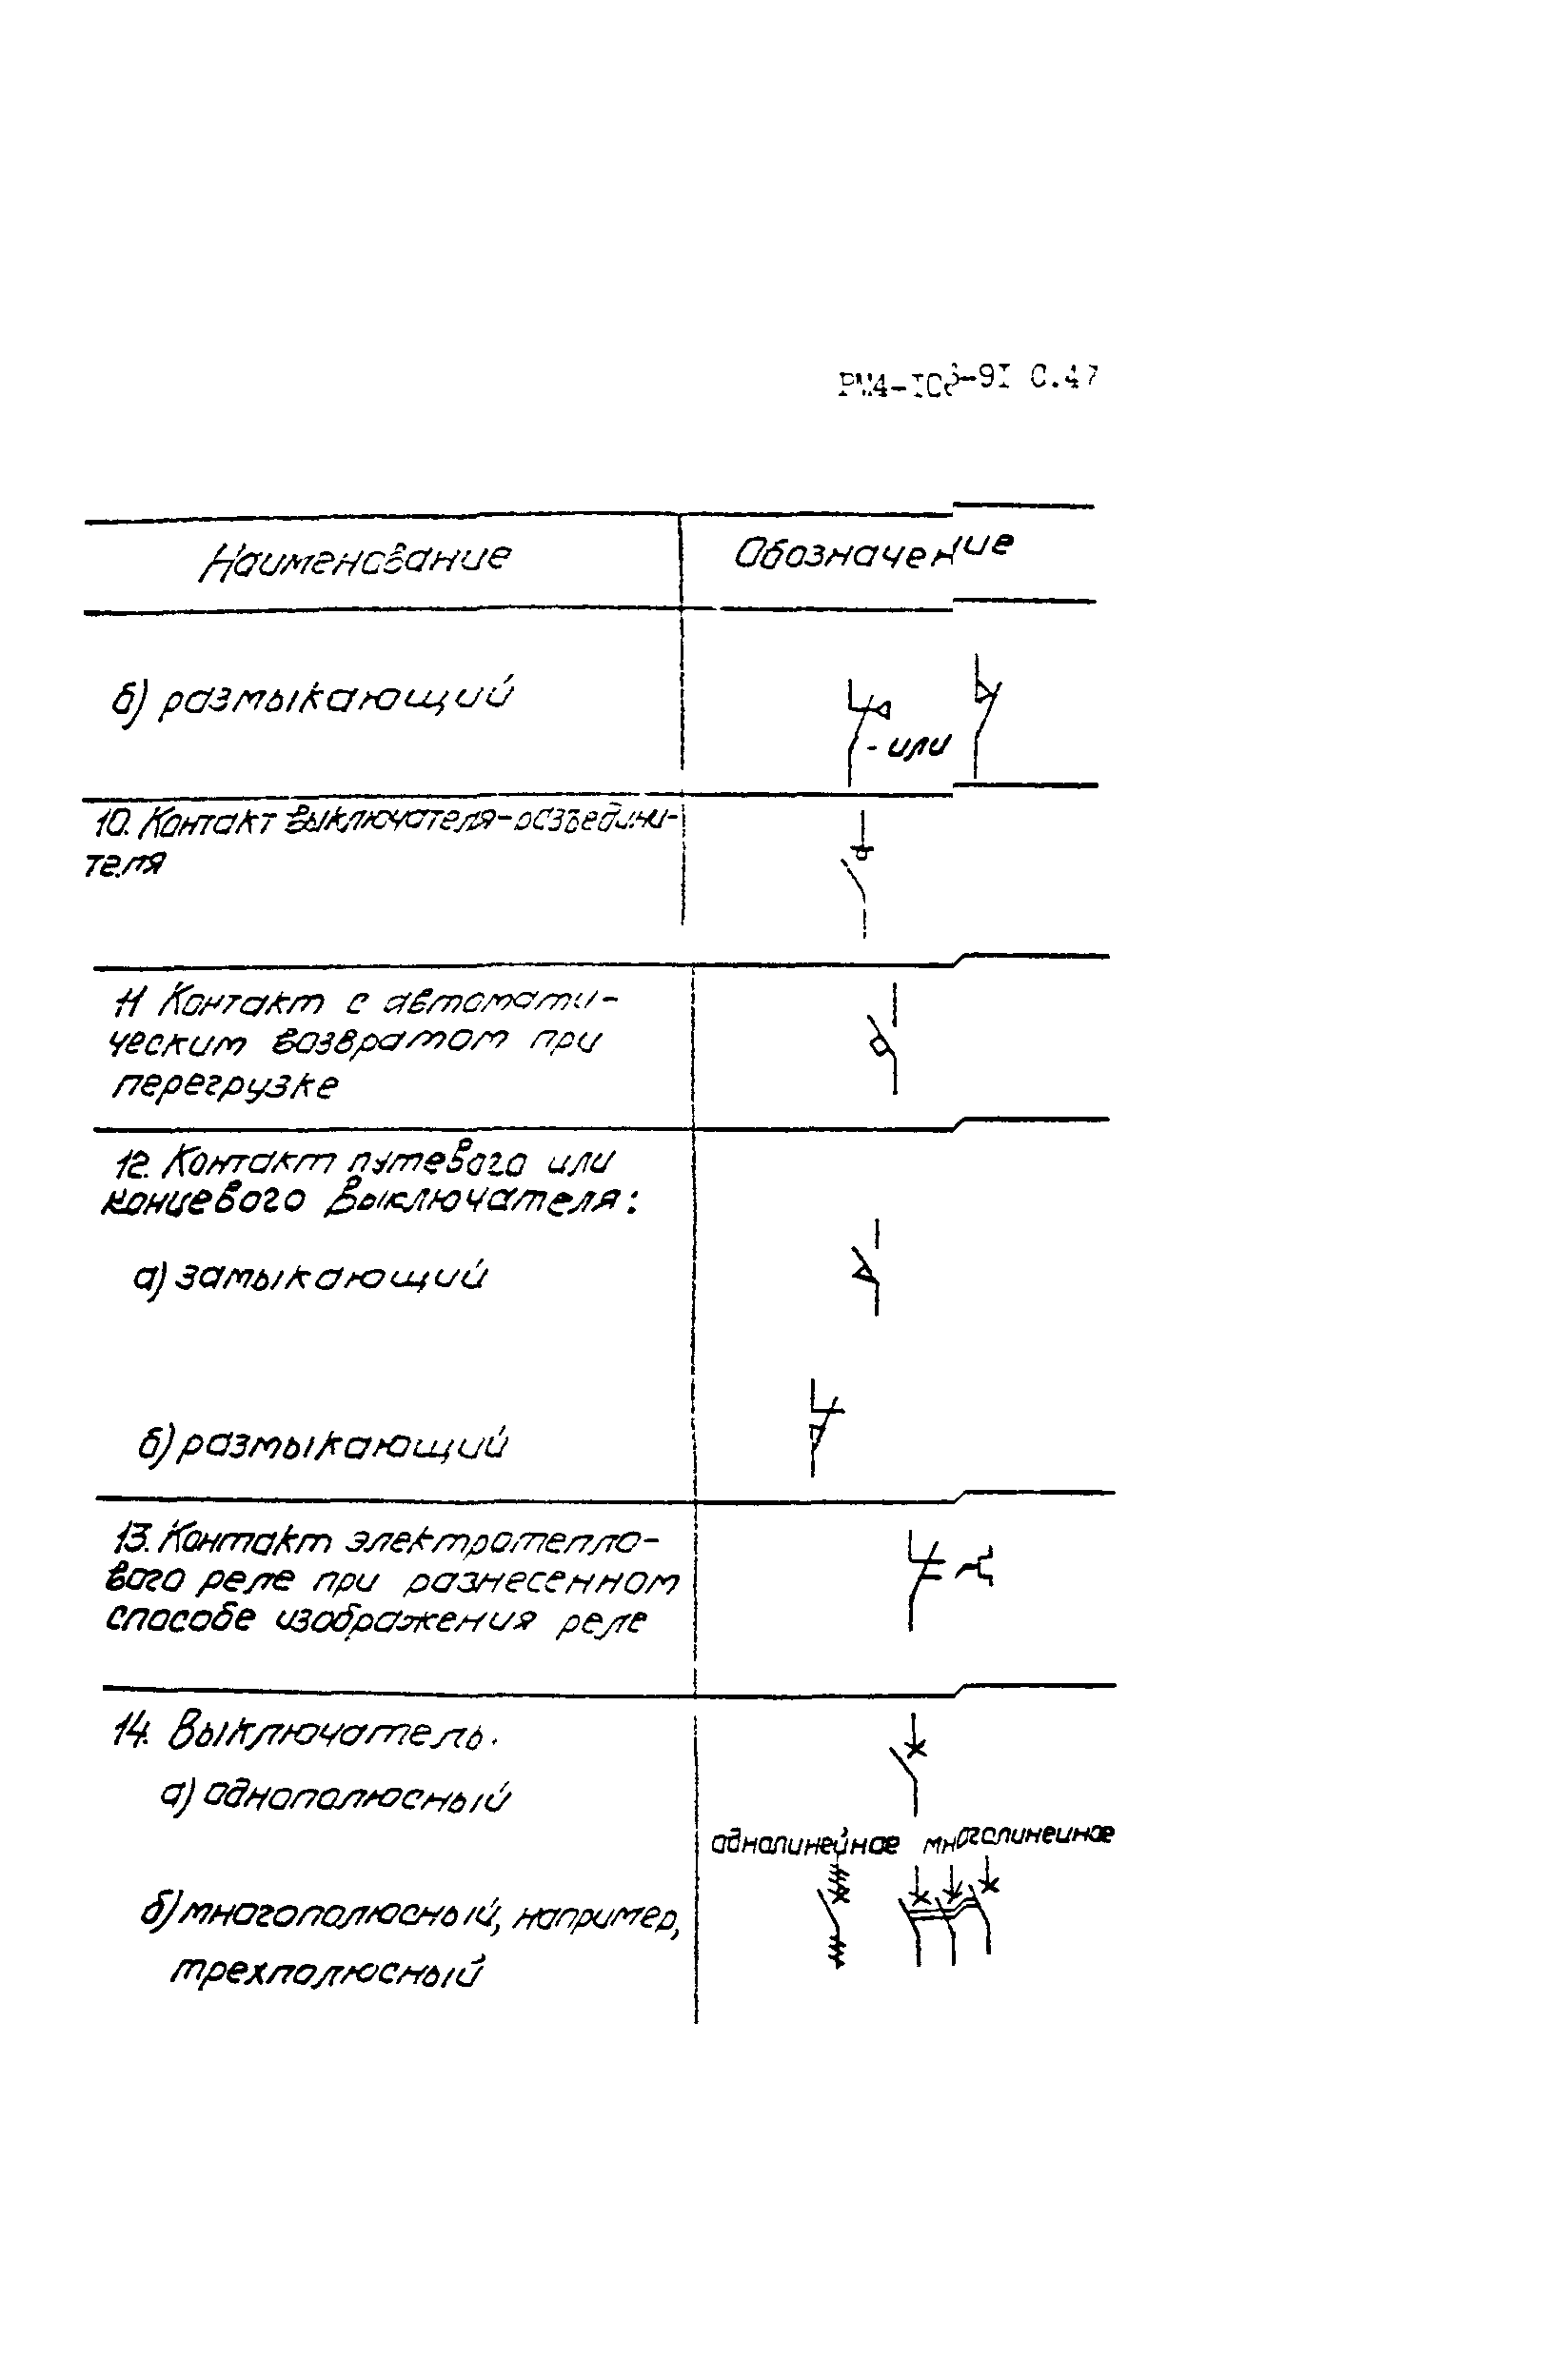 РМ4-106-91 С.47
Наименование Обозначение
б) размыкающий
- или
10. Контакт выключателя-разъедини-
теля
11 Контакт с автомати-
ческим возвратом при
перегрузке
12. Контакт путевого или
концевого выключателя:
а) замыкающий
б) размыкающий
13. Контакт электротепло-
вого реле при разнесенном
способе изображения реле
14. Выключатель.
а) однополюсный
однолинейное многолинейное
б) многополюсный, например,
трехполюсный